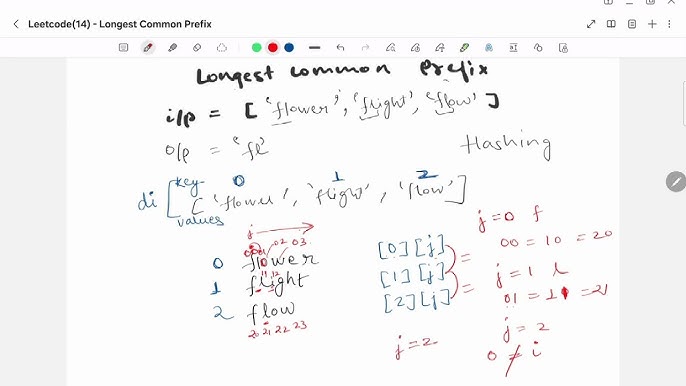 Leetcode(14) - Longest Common Prefix
Longest common Prefix
i/p = ['flower', 'flight', 'flow']
o/p = 'fl'
Hashing
key- 0 1 2
di ['flower', 'flight', 'flow']
values
j
00 01 02 03
0 flower
11 12
1 flight
2 flow
20 21 22 23
[0][j]
[1][j] =
[2][j] =
j=2
j=0 f
00 = 10 = 20
j=1 l
01 = 11 = 21
j=2
o ≠ i